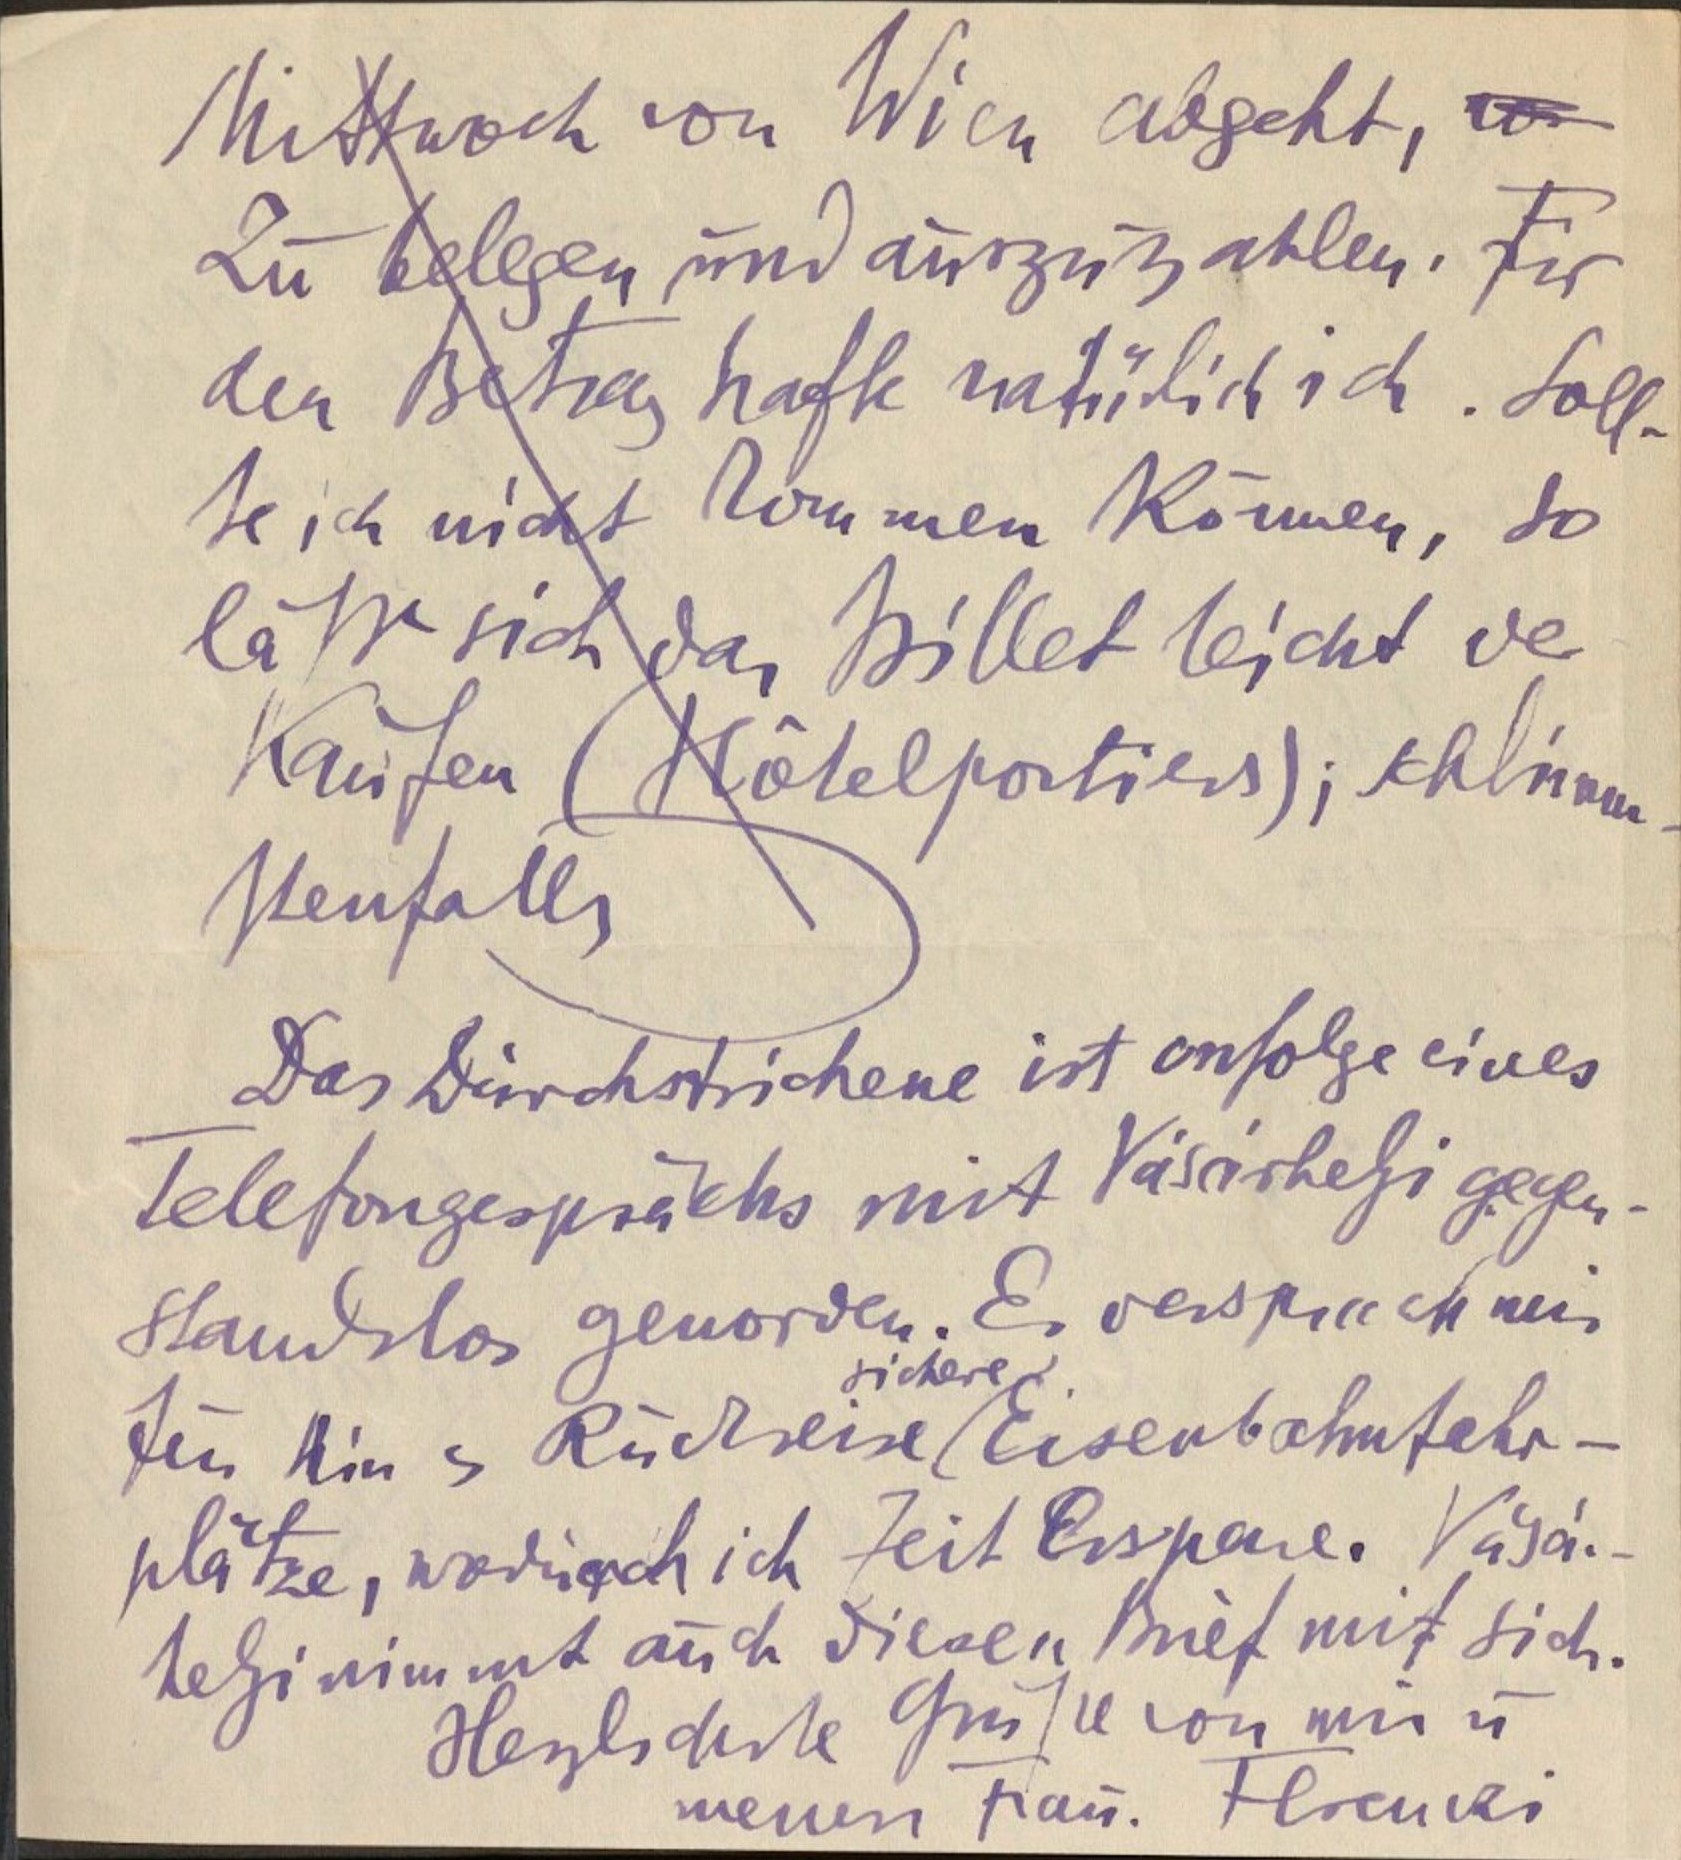 Mittwoch von Wien abgeht,
zu belegen und auszuzahlen. Für
den Betrag hafte natürlich ich. Soll-
te ich nicht kommen können, so
läßt sich das Billet leicht ver
kaufen (Hôtelportiers); schlimm-
stenfalls
Das Durchstrichene ist infolge eines
Telefongesprächs mit Vásárhelyi gegen-
standslos geworden. Er versprach mir
für Hin & Rückreise sichere Eisenbahnfahr-
plätze, wodurch ich Zeit Erspare. Vásár-
helyi nimmt auch diesen Brief mit sich.
Herzlichste Grüße von mir u
meiner Frau. Ferenczi